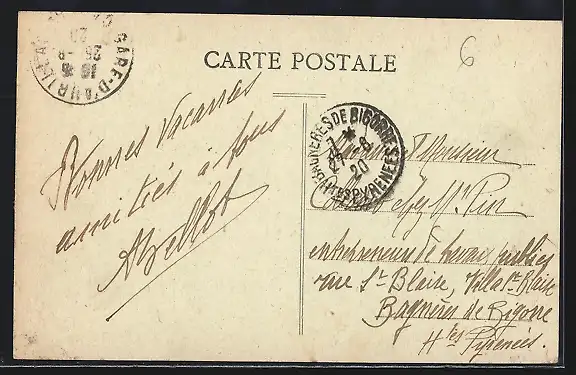 CARTE POSTALE
6
GARE-D'AURILLAC
25-8
20
Bonnes Vacances
amitiés à tous
BAGNERES DE BIGORRE
27-8
20
HTES PYRENEES
Monsieur
chez Mr Pin
entrepreneur de travaux publics
rue St Blaise, Villa St Blaise
Bagnères de Bigorre
Htes Pyrénées.